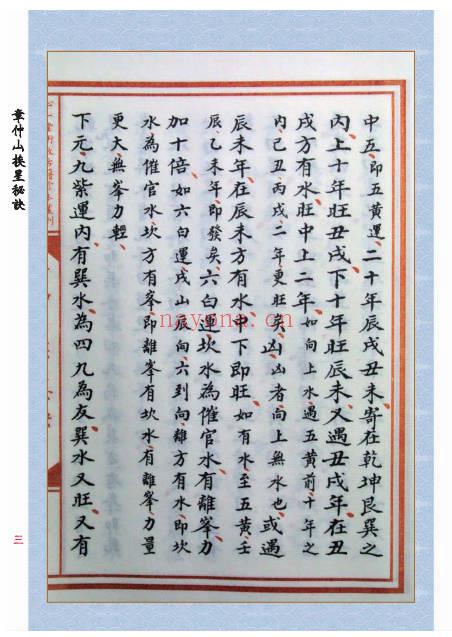 章仲山挨星秘訣
中五即五黃運二十年辰戌丑未寄在乾坤艮巽之
內上十年旺丑戌下十年旺辰未又遇丑戌年在丑
戌方有水旺中上二年如向上水遇五黃前十年之
內己丑丙戌二年更旺矣凶凶者向上無水也或遇
辰未年在辰未方有水中下即旺如有水至五黃壬
辰乙未年即發矣六白運坎水為催官水有離峯力
加十倍如六白運戌山辰向六到向離方有水即坎
水為催官水坎方有峯即離峯有坎水有離峯力量
更大無峯力輕
下元九紫運內有巽水為四九為友巽水又旺又有
三
nayona.cn